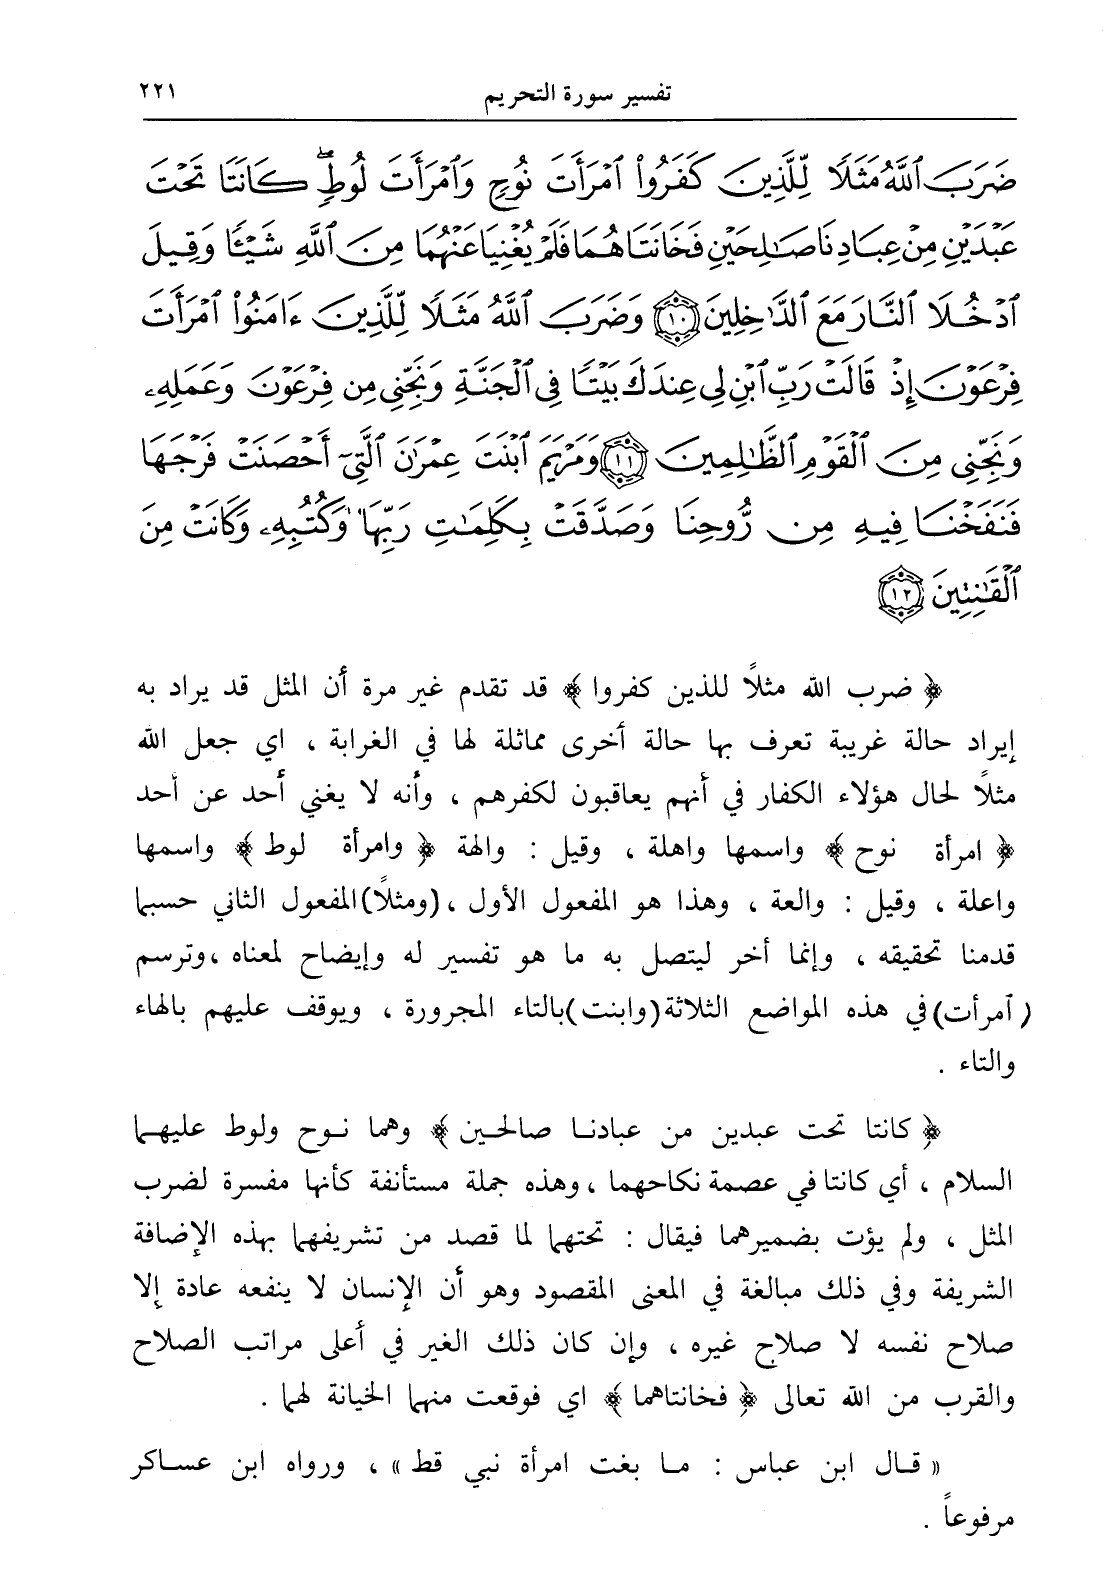 تفسير سورة التحريم ٢٢١
ضَرَبَ ٱللَّهُ مَثَلًا لِّلَّذِينَ كَفَرُوا۟ ٱمْرَأَتَ نُوحٍ وَٱمْرَأَتَ لُوطٍۖ كَانَتَا تَحْتَ
عَبْدَيْنِ مِنْ عِبَادِنَا صَٰلِحَيْنِ فَخَانَتَاهُمَا فَلَمْ يُغْنِيَا عَنْهُمَا مِنَ ٱللَّهِ شَيْـًٔا وَقِيلَ
ٱدْخُلَا ٱلنَّارَ مَعَ ٱلدَّٰخِلِينَ ١٠ وَضَرَبَ ٱللَّهُ مَثَلًا لِّلَّذِينَ ءَامَنُوا۟ ٱمْرَأَتَ
فِرْعَوْنَ إِذْ قَالَتْ رَبِّ ٱبْنِ لِى عِندَكَ بَيْتًا فِى ٱلْجَنَّةِ وَنَجِّنِى مِن فِرْعَوْنَ وَعَمَلِهِۦ
وَنَجِّنِى مِنَ ٱلْقَوْمِ ٱلظَّٰلِمِينَ ١١ وَمَرْيَمَ ٱبْنَتَ عِمْرَٰنَ ٱلَّتِىٓ أَحْصَنَتْ فَرْجَهَا
فَنَفَخْنَا فِيهِ مِن رُّوحِنَا وَصَدَّقَتْ بِكَلِمَٰتِ رَبِّهَا وَكُتُبِهِۦ وَكَانَتْ مِنَ
ٱلْقَٰنِتِينَ ١٢
﴿ ضرب الله مثلاً للذين كفروا ﴾ قد تقدم غير مرة أن المثل قد يراد به
إيراد حالة غريبة تعرف بها حالة أخرى مماثلة لها في الغرابة ، اي جعل الله
مثلاً لحال هؤلاء الكفار في أنهم يعاقبون لكفرهم ، وأنه لا يغني أحد عن أحد
﴿ امرأة نوح ﴾ واسمها واهلة ، وقيل : والهة ﴿ وامرأة لوط ﴾ واسمها
واعلة ، وقيل : والعة ، وهذا هو المفعول الأول ، (ومثلاً) المفعول الثاني حسبما
قدمنا تحقيقه ، وإنما أخر ليتصل به ما هو تفسير له وإيضاح لمعناه ، وترسم
( آمرأت) في هذه المواضع الثلاثة (وابنت) بالتاء المجرورة ، ويوقف عليهم بالهاء
والتاء .
﴿ كانتا تحت عبدين من عبادنا صالحين ﴾ وهما نوح ولوط عليهما
السلام ، أي كانتا في عصمة نكاحهما ، وهذه جملة مستأنفة كأنها مفسرة لضرب
المثل ، ولم يؤت بضميرهما فيقال : تحتهما لما قصد من تشريفهما بهذه الإضافة
الشريفة وفي ذلك مبالغة في المعنى المقصود وهو أن الإنسان لا ينفعه عادة إلا
صلاح نفسه لا صلاح غيره ، وإن كان ذلك الغير في أعلى مراتب الصلاح
والقرب من الله تعالى ﴿ فخانتاهما ﴾ اي فوقعت منهما الخيانة لهما .
« قال ابن عباس : ما بغت امرأة نبي قط » ، ورواه ابن عساكر
مرفوعاً .